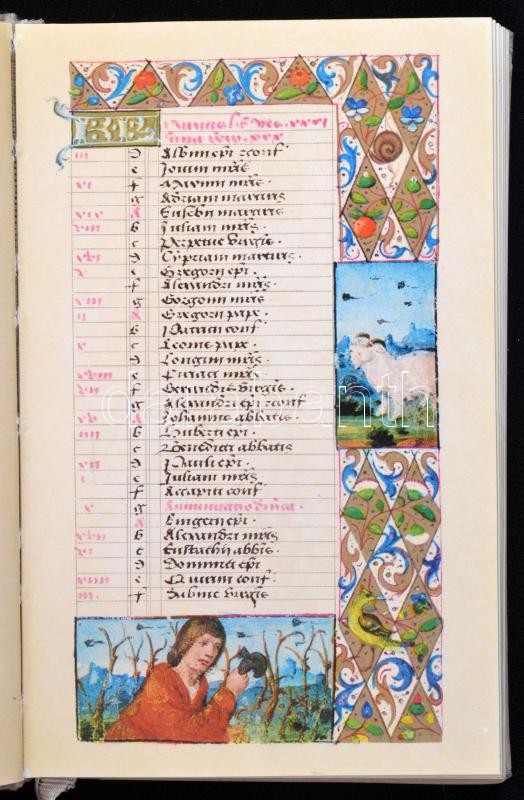 KL Marcius h̄t dies xxxi
luna vero xxx
iii d Albini epi ⁊ conf
e Iovini mr̄is
xi f Marini mr̄is
g Adriani martiris
xix A Eusebii martiris
viii b Iuliani mr̄is
c Perpetue virgis
xvi d Cypriani martiris
v e Gregorii epi
f Alexandri mr̄is
xiii g Gorgonii mr̄is
ii A Gregorii pape
b conf
x c Leonis pape
d Longini mr̄is
xviii e Ciriaci mr̄is
vii f Gertrudis virgis
g Alexandri epi ⁊ conf
xv A Iohannis abbatis
iiii b Huberti epi
c Benedicti abbatis
xii d Pauli epi
i e Iuliani mr̄is
f Agapiti conf
ix g Annunciatio dnica
A epi
xvii b Alexandri mr̄is
vi c Eustachii abbis
d Dominici epi
xiiii e Quirini conf
iii f Sabine virgis